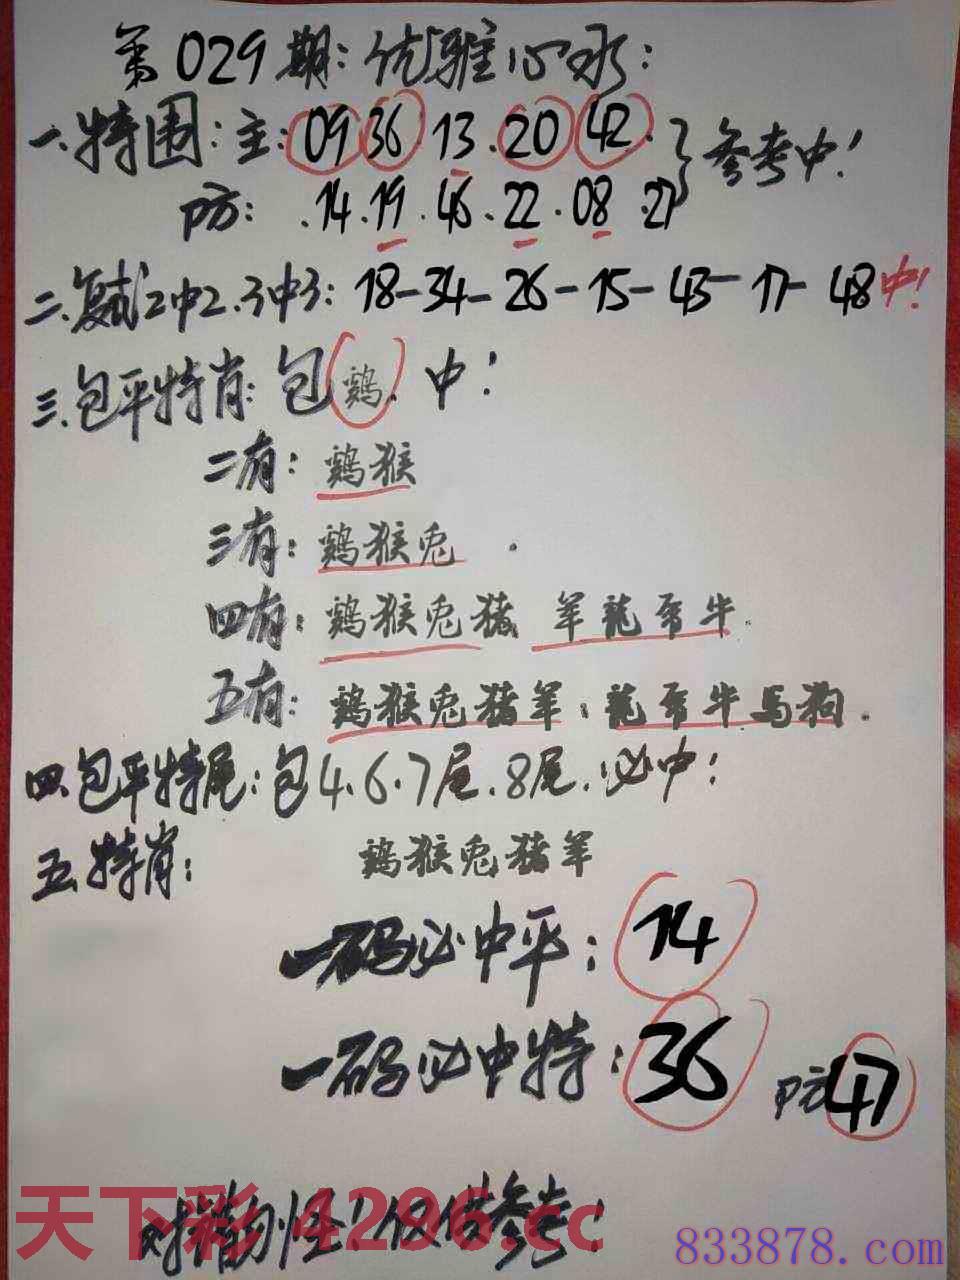 第029期:优雅心水:
一.特围:主:09 36·13·20 42·}参考中!
防:.14.19.46.22.08.27
二.复试2中2.3中3:18-34-26-15-43-17-48中!
三.包平特肖:包鷄.中!
二有:鷄猴
三有:鷄猴兎.
四有:鷄猴兎豬 羊龍
牛.
五有:鷄猴兎豬羊:龍
牛馬狗.
四.包平特尾:包4.6.7尾.8尾.必中!
五.特肖: 鷄猴兎豬羊
一码必中平:14
一码必中特:36 防47
天下彩 4296.cc
仅供参考!
833878.com